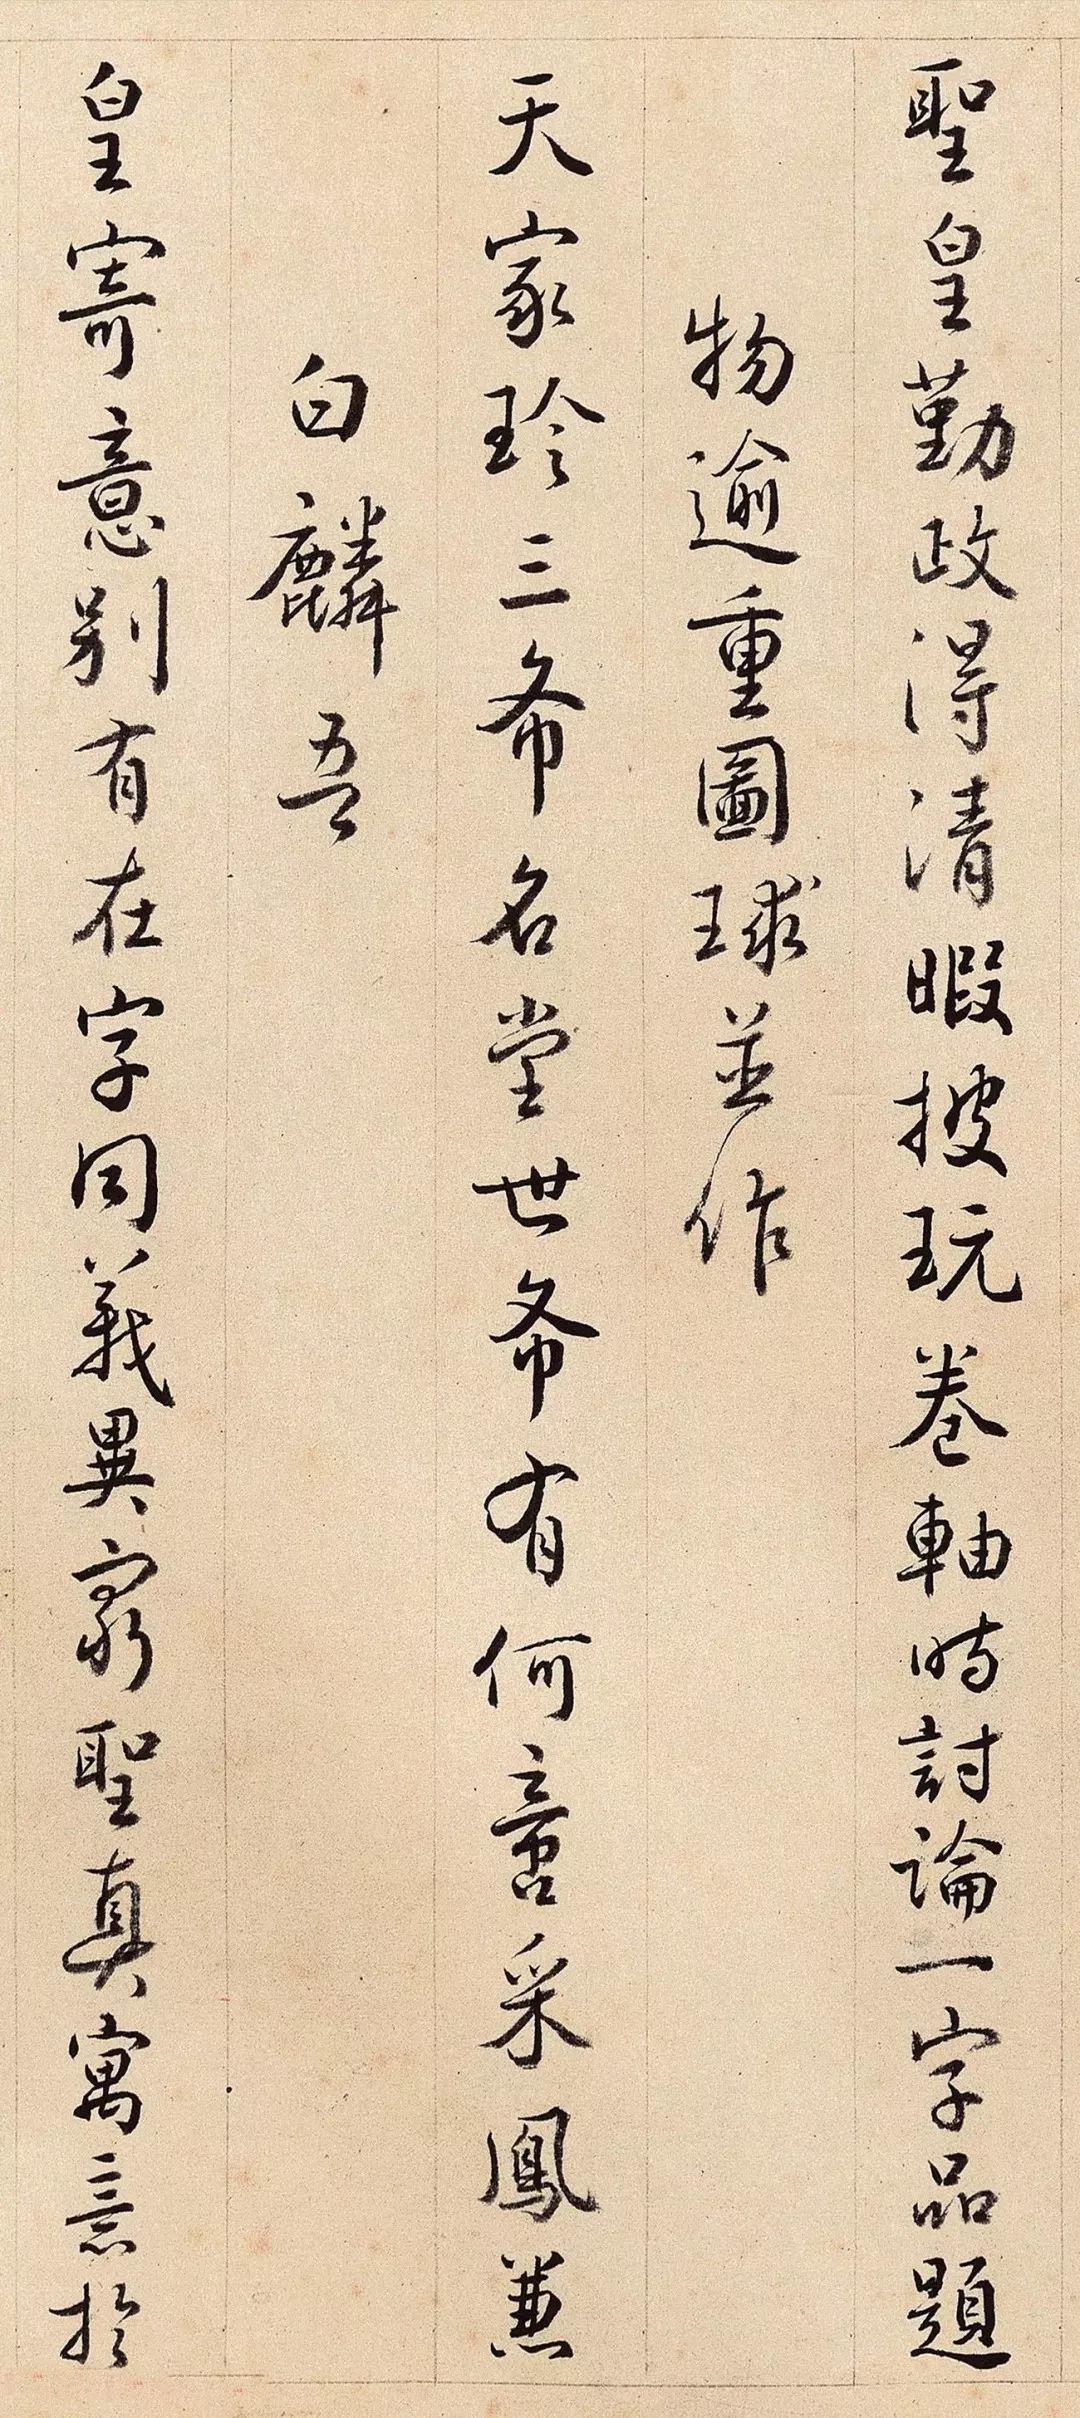 聖皇勤政得清暇披玩卷軸時討論一字品題
物逾重圖球並作
天家珍三希名堂世希有何啻采鳳兼
白麟吾
皇寄意别有在字同義異家聖真寓意於